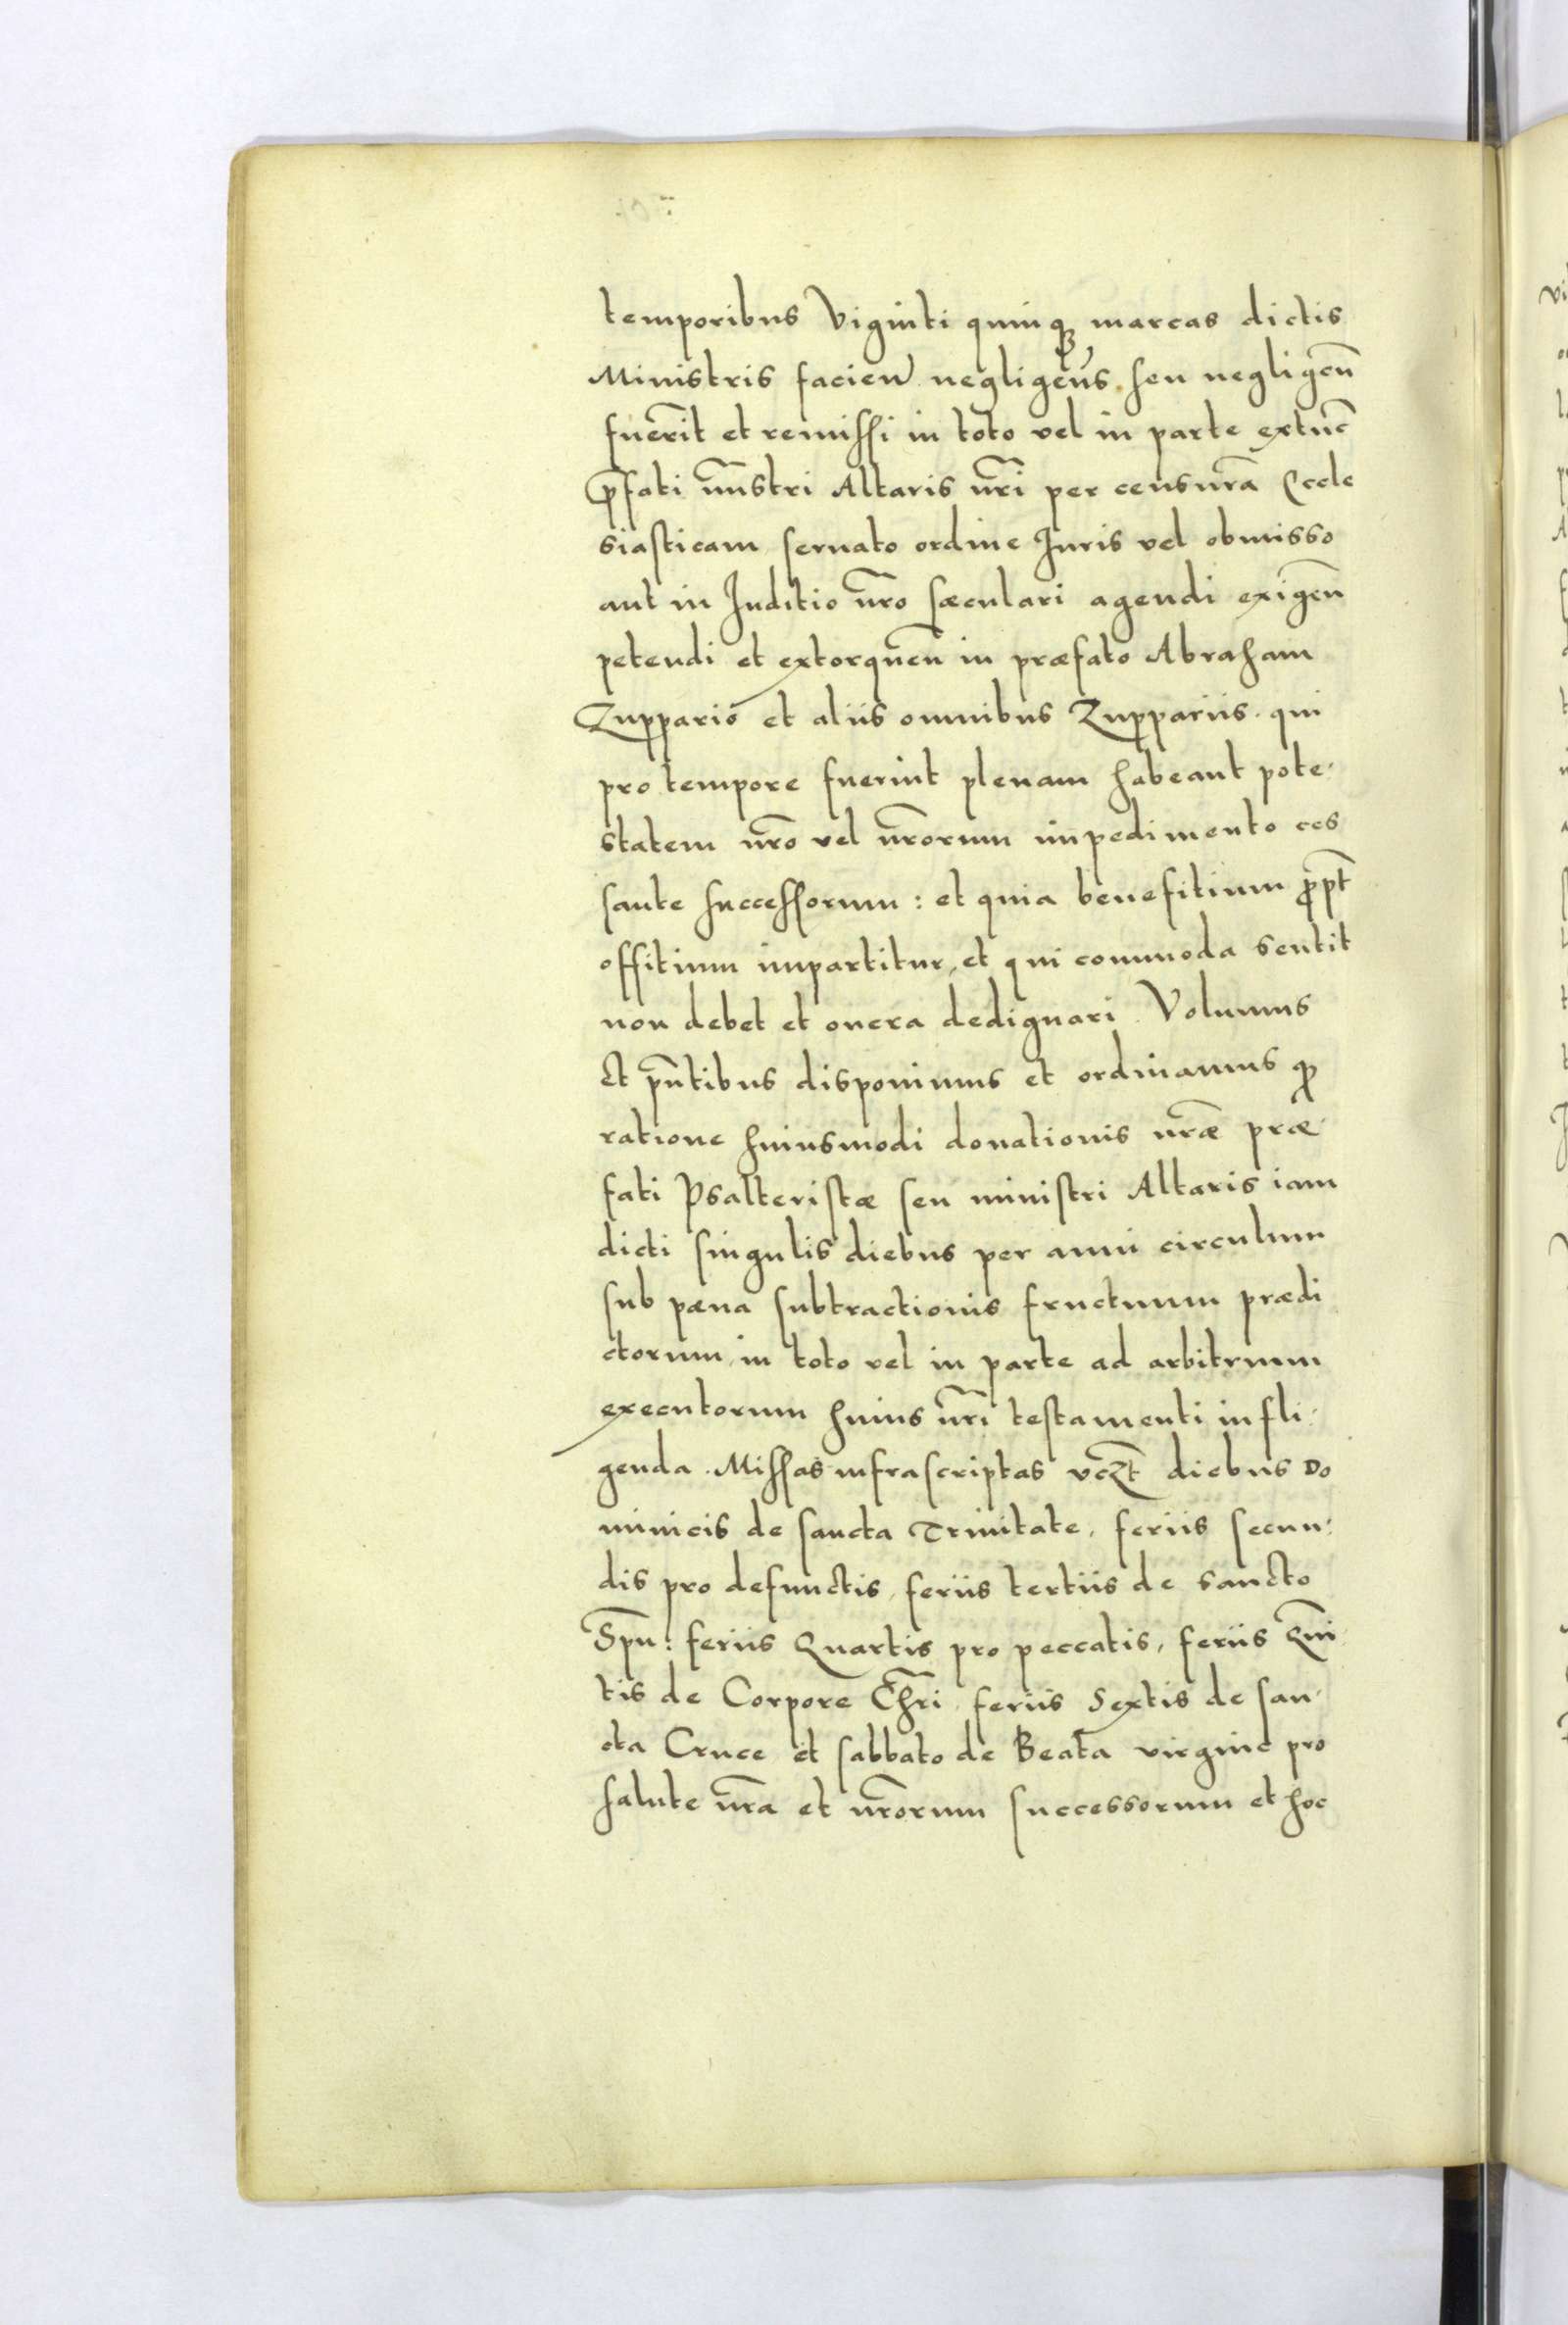 temporibus Viginti quinqꝫ marcas dictis
Ministris facien̄ negligen̄s seu negligen̄
fuer̄it et remissi in toto vel in parte extūc
p̄fati mn̄stri Altaris nr̄i per censurā Eccle
siasticam seruato ordine Iuris vel obmisso
aut in Juditio nr̄o sæculari agendi exigen̄
petendi et extorquen̄ in præfato Abraham
Zuppario et aliis omnibus Zuppariis qui
pro tempore fuerint plenam habeant pote-
statem nr̄o vel nr̄orum impedimento ces
sante successorum: et quia benefitium prōpt
offitium impartitur, et qui commoda sentit
non debet et onera dedignari. Volumus
Et pn̄tibus disponimus et ordinamus ꝙ
ratione huiusmodi donationis nr̄æ præ-
fati Psalteristæ seu ministri Altaris iam
dicti singulis diebus per anni circulum
sub pæna subtractionis fructuum prædi
ctorum in toto vel in parte ad arbitrium
executorum huius nr̄i testamenti infli-
genda. Missas infrascriptas vcꝫt̄ diebus Do
minicis de sancta Trinitate, feriis secun-
dis pro defunctis, feriis tertiis de sancto
Sp̄u: feriis Quartis pro peccatis, feriis Qui̅
tis de Corpore Chr̄i feriis Sextis de san-
cta Cruce et sabbato de Beata virgine pro
salute nr̄a et nr̄orum successorum et hoc